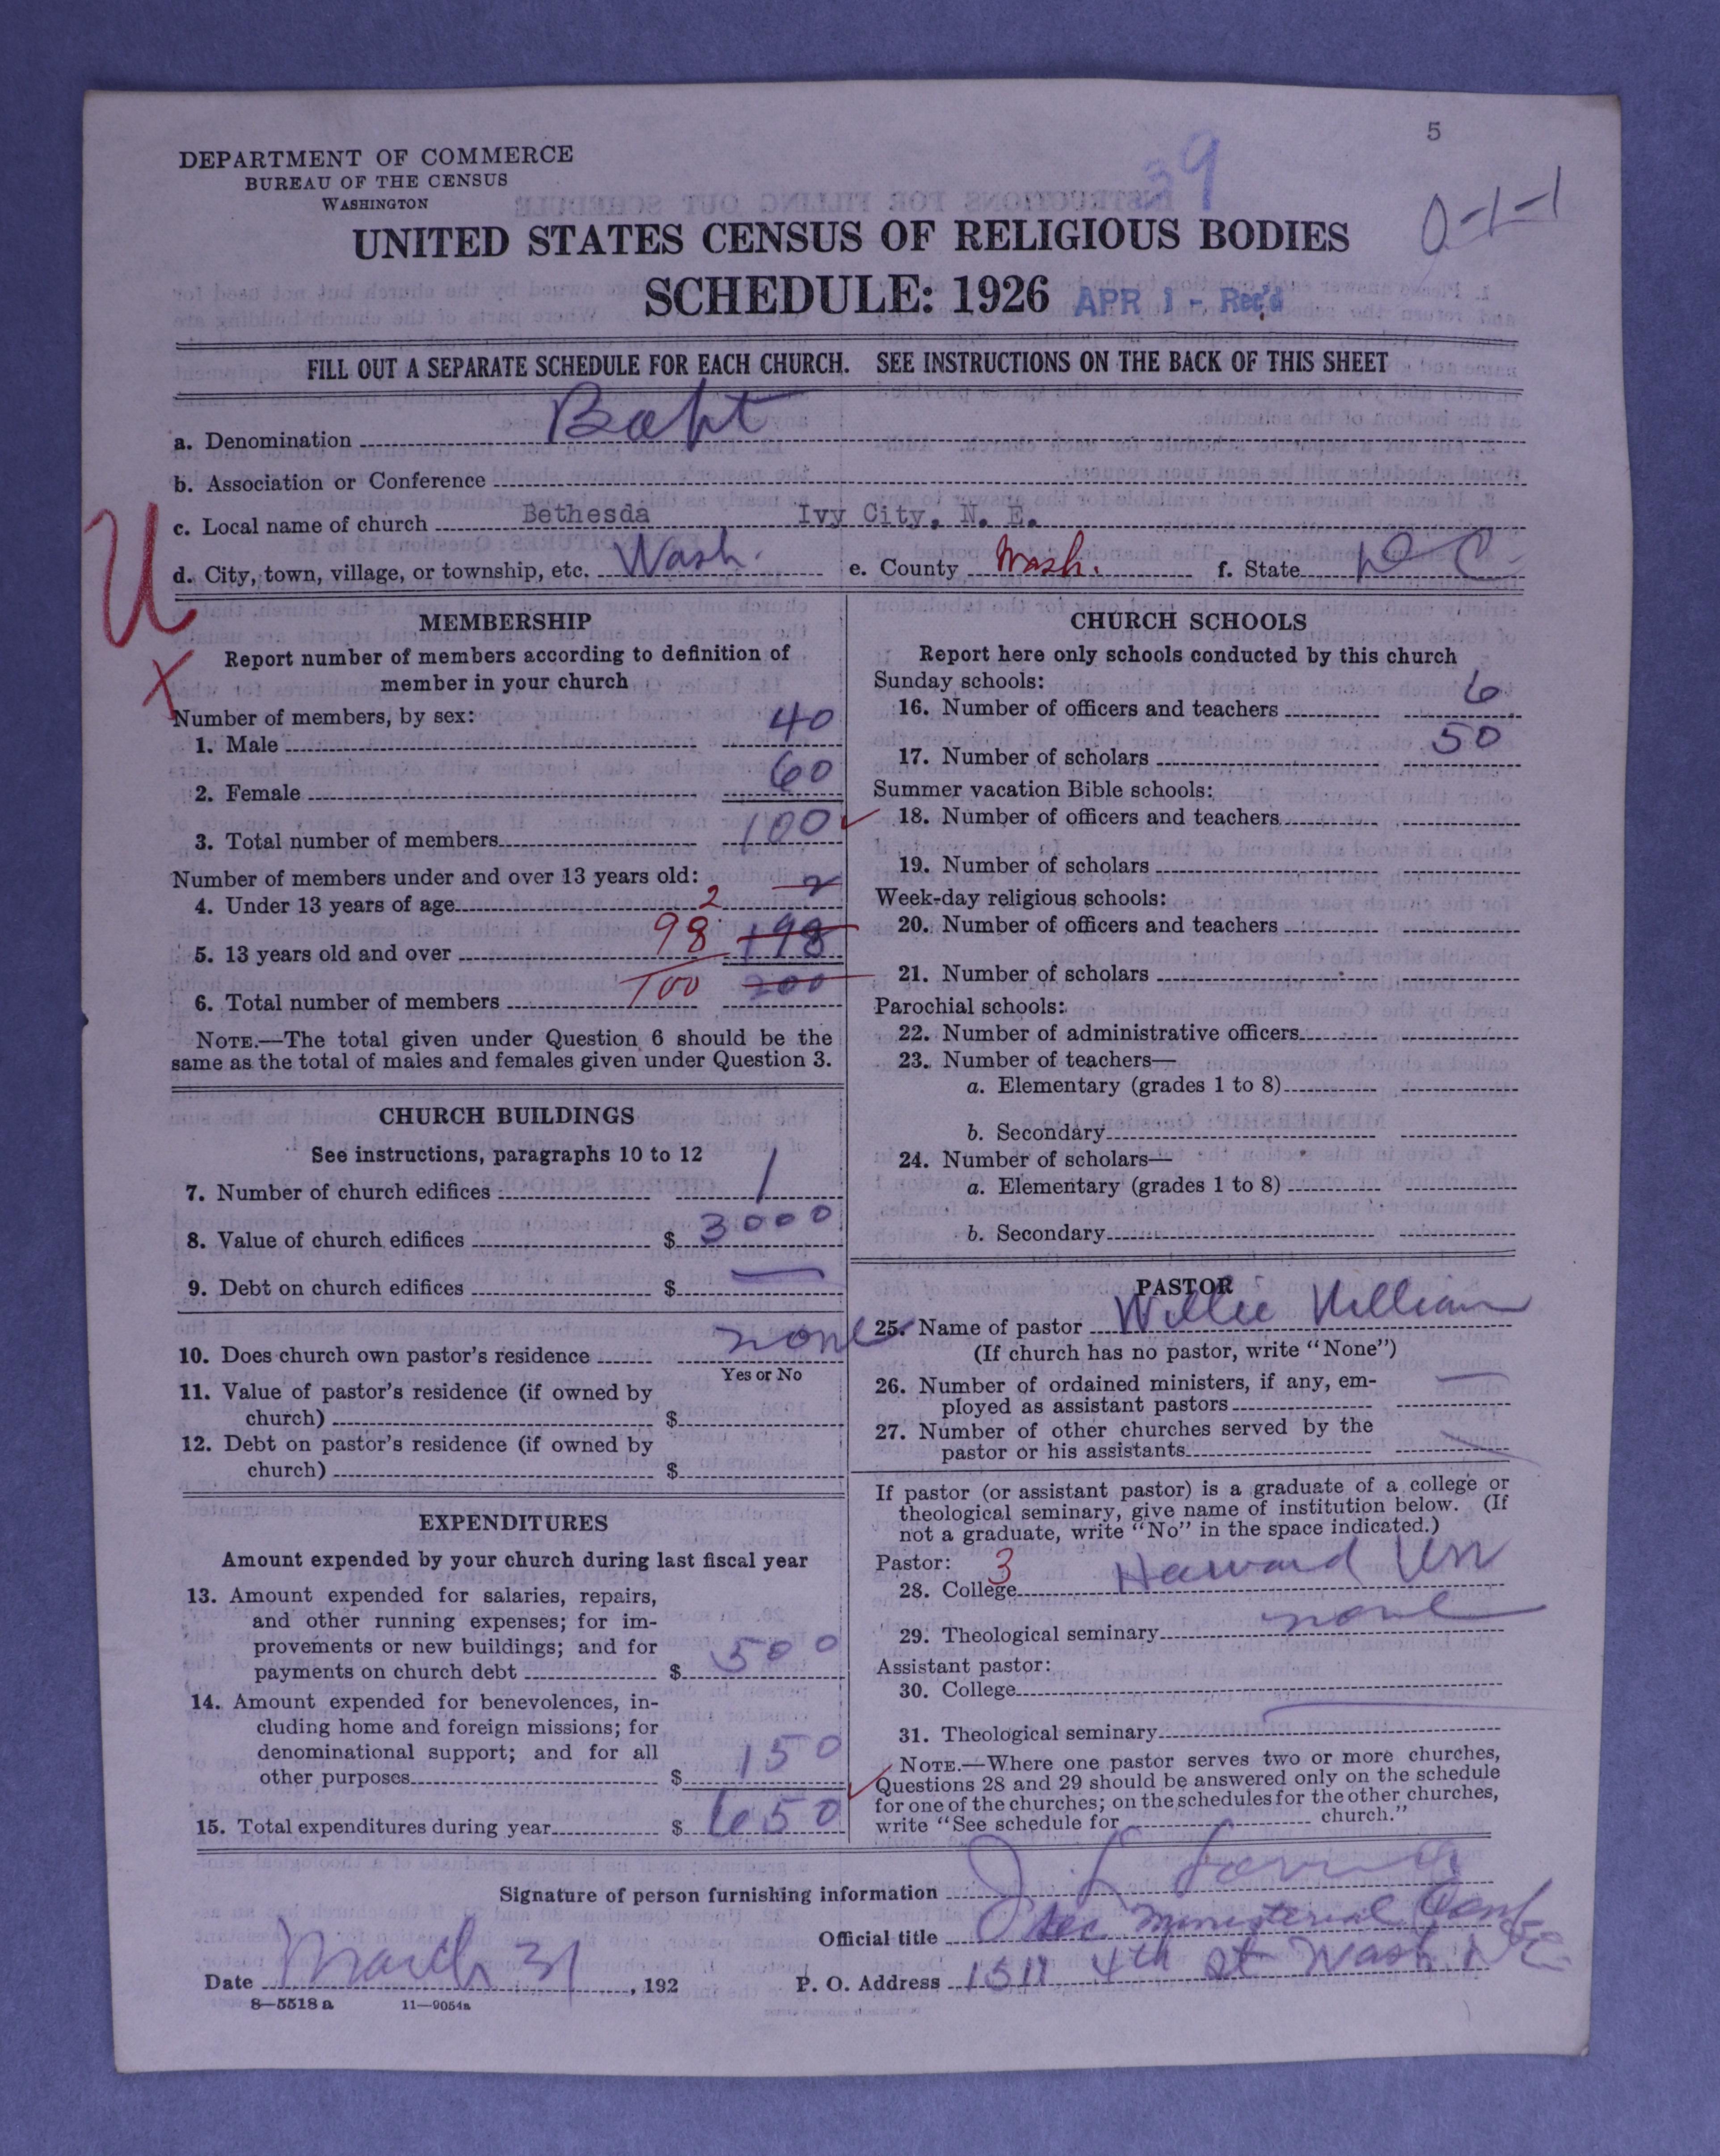 5
DEPARTMENT OF COMMERCE
BUREAU OF THE CENSUS
WASHINGTON
39
0-1-1
UNITED STATES CENSUS OF RELIGIOUS BODIES
SCHEDULE: 1926 APR 1 - Rec'd
FILL OUT A SEPARATE SCHEDULE FOR EACH CHURCH. SEE INSTRUCTIONS ON THE BACK OF THIS SHEET
a. Denomination Bapt
b. Association or Conference
c. Local name of church Bethesda Ivy City, N. E.
d. City, town, village, or township, etc. Wash. e. County Wash. f. State D C
U
X
MEMBERSHIP
Report number of members according to definition of
member in your church
Number of members, by sex:
1. Male 40
2. Female 60
3. Total number of members 100
Number of members under and over 13 years old:
4. Under 13 years of age 2 2
5. 13 years old and over 98 198
6. Total number of members 100 200
NOTE.—The total given under Question 6 should be the
same as the total of males and females given under Question 3.
CHURCH BUILDINGS
See instructions, paragraphs 10 to 12
7. Number of church edifices 1
8. Value of church edifices $ 3000
9. Debt on church edifices $ —
10. Does church own pastor's residence none
Yes or No
11. Value of pastor's residence (if owned by
church) $
12. Debt on pastor's residence (if owned by
church) $
EXPENDITURES
Amount expended by your church during last fiscal year
13. Amount expended for salaries, repairs,
and other running expenses; for im-
provements or new buildings; and for
payments on church debt $ 500
14. Amount expended for benevolences, in-
cluding home and foreign missions; for
denominational support; and for all
other purposes $ 150
15. Total expenditures during year $ 650
CHURCH SCHOOLS
Report here only schools conducted by this church
Sunday schools:
16. Number of officers and teachers 6
17. Number of scholars 50
Summer vacation Bible schools:
18. Number of officers and teachers
19. Number of scholars
Week-day religious schools:
20. Number of officers and teachers
21. Number of scholars
Parochial schools:
22. Number of administrative officers
23. Number of teachers—
a. Elementary (grades 1 to 8)
b. Secondary
24. Number of scholars—
a. Elementary (grades 1 to 8)
b. Secondary
PASTOR
25. Name of pastor Willie William
(If church has no pastor, write "None")
26. Number of ordained ministers, if any, em-
ployed as assistant pastors —
27. Number of other churches served by the
pastor or his assistants
If pastor (or assistant pastor) is a graduate of a college or
theological seminary, give name of institution below. (If
not a graduate, write "No" in the space indicated.)
Pastor: 3
28. College Howard Un
29. Theological seminary none
Assistant pastor:
30. College
31. Theological seminary
NOTE.—Where one pastor serves two or more churches,
Questions 28 and 29 should be answered only on the schedule
for one of the churches; on the schedules for the other churches,
write "See schedule for church."
Signature of person furnishing information J L
Official title Sec Ministerial Conf
Date March 31, 192 P. O. Address 1511 4th St Wash D C
8—5518 a 11—9054a